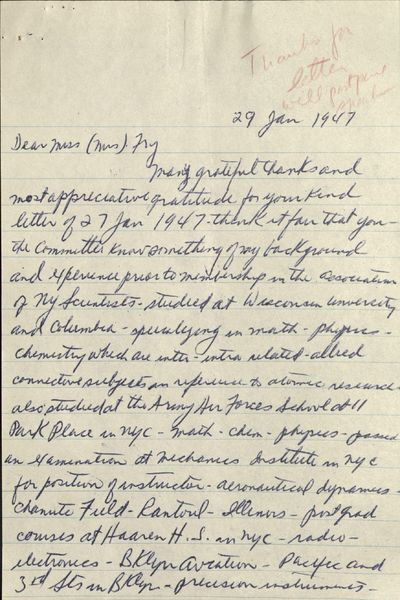 Thanks for
letter
will postpone
29 Jan 1947
Dear Miss (Mrs) Fry
Many grateful thanks and
most appreciative gratitude for your kind
letter of 27 Jan 1947 - think it fair that you -
the Committee know something of my background
and experience prior to membership in the association
of NY Scientists - studied at Wisconsin University
and Columbia - specializing in math - physics -
chemistry which are inter - intra related - allied
connective subjects in reference to atomic research -
also studied at the Army Air Forces School at 11
Park Place in NYC - math - chem - physics - passed
an examination at Mechanics Institute in NYC
for position of instructor - aeronautical dynamics -
Chanute Field - Rantoul - Illinois - post grad
courses at Haaren H.S. in NYC - radio -
electronics - BKlyn Aviation - Pacific and
3rd Sts in BKlyn - precision instruments -